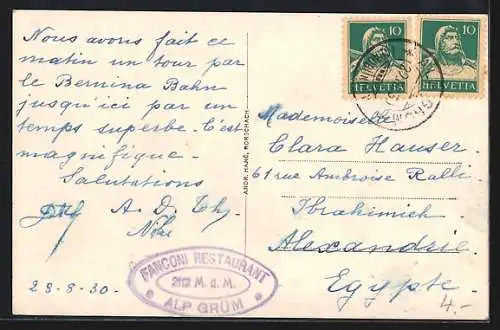 Nous avons fait ce
matin un tour par
le Bernina Bahn
jusqu'ici par un
temps superbe. C'est
magnifique.
Salutations
A. D.
28-8-30.
FANCONI RESTAURANT
2112 M. d. M.
ALP GRÜM
ANDR. HANE, RORSCHACH
10
HELVETIA
10
HELVETIA
Mademoiselle
Clara Hauser
61 rue Ambroise Ralli
Ibrahimieh
Alexandrie
Egypte
4.-